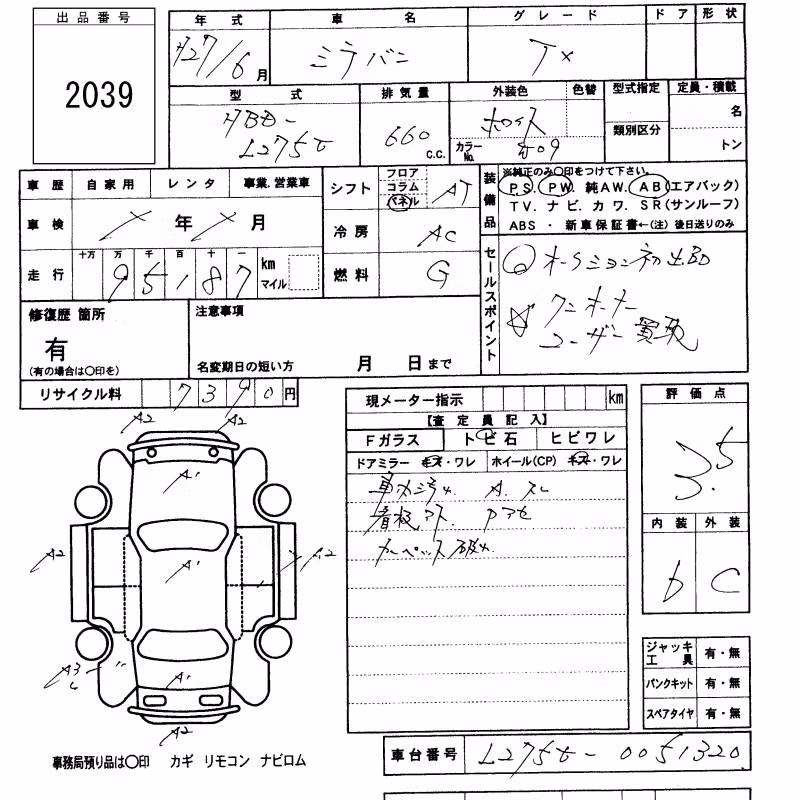 出品番号
2039
年式 車名 グレード ドア 形状
H27/6月 ミラバン TX
型式 排気量 外装色 色替 型式指定 定員・積載
HBD- 660 c.c. ホワイト 類別区分 名
L275V カラーNo. W09 トン
車歴 自家用 レンタ 事業.営業車
車検 年 月
走行 十万 万 千 百 十 一
95187 km マイル
シフト フロア コラム パネル AT
冷房 AC
燃料 G
装備品 ※純正のみ○印をつけて下さい。
PS. PW. 純AW. AB(エアバック)
TV. ナビ. カワ. SR(サンルーフ)
ABS ・ 新車保証書←(注) 後日送りのみ
セールスポイント
オークション初出品
ワンオーナー
ユーザー買取
修復歴 箇所
有
(有の場合は○印を)
注意事項
名変期日の短い方 月 日まで
リサイクル料 7390円
現メーター指示 km
【査定員記入】
Fガラス トビ石 ヒビワレ
ドアミラー キズ・ワレ ホイール(CP) キズ・ワレ
A. スレ
看板アト.
カーペット
評価点
3.5
内装 外装
b C
ジャッキ 工具 有・無
パンクキット 有・無
スペアタイヤ 有・無
A2 A2
A1
A2 A1 A2
A3 A1
A2
事務局預り品は○印 カギ リモコン ナビロム
車台番号 L275V-0051320